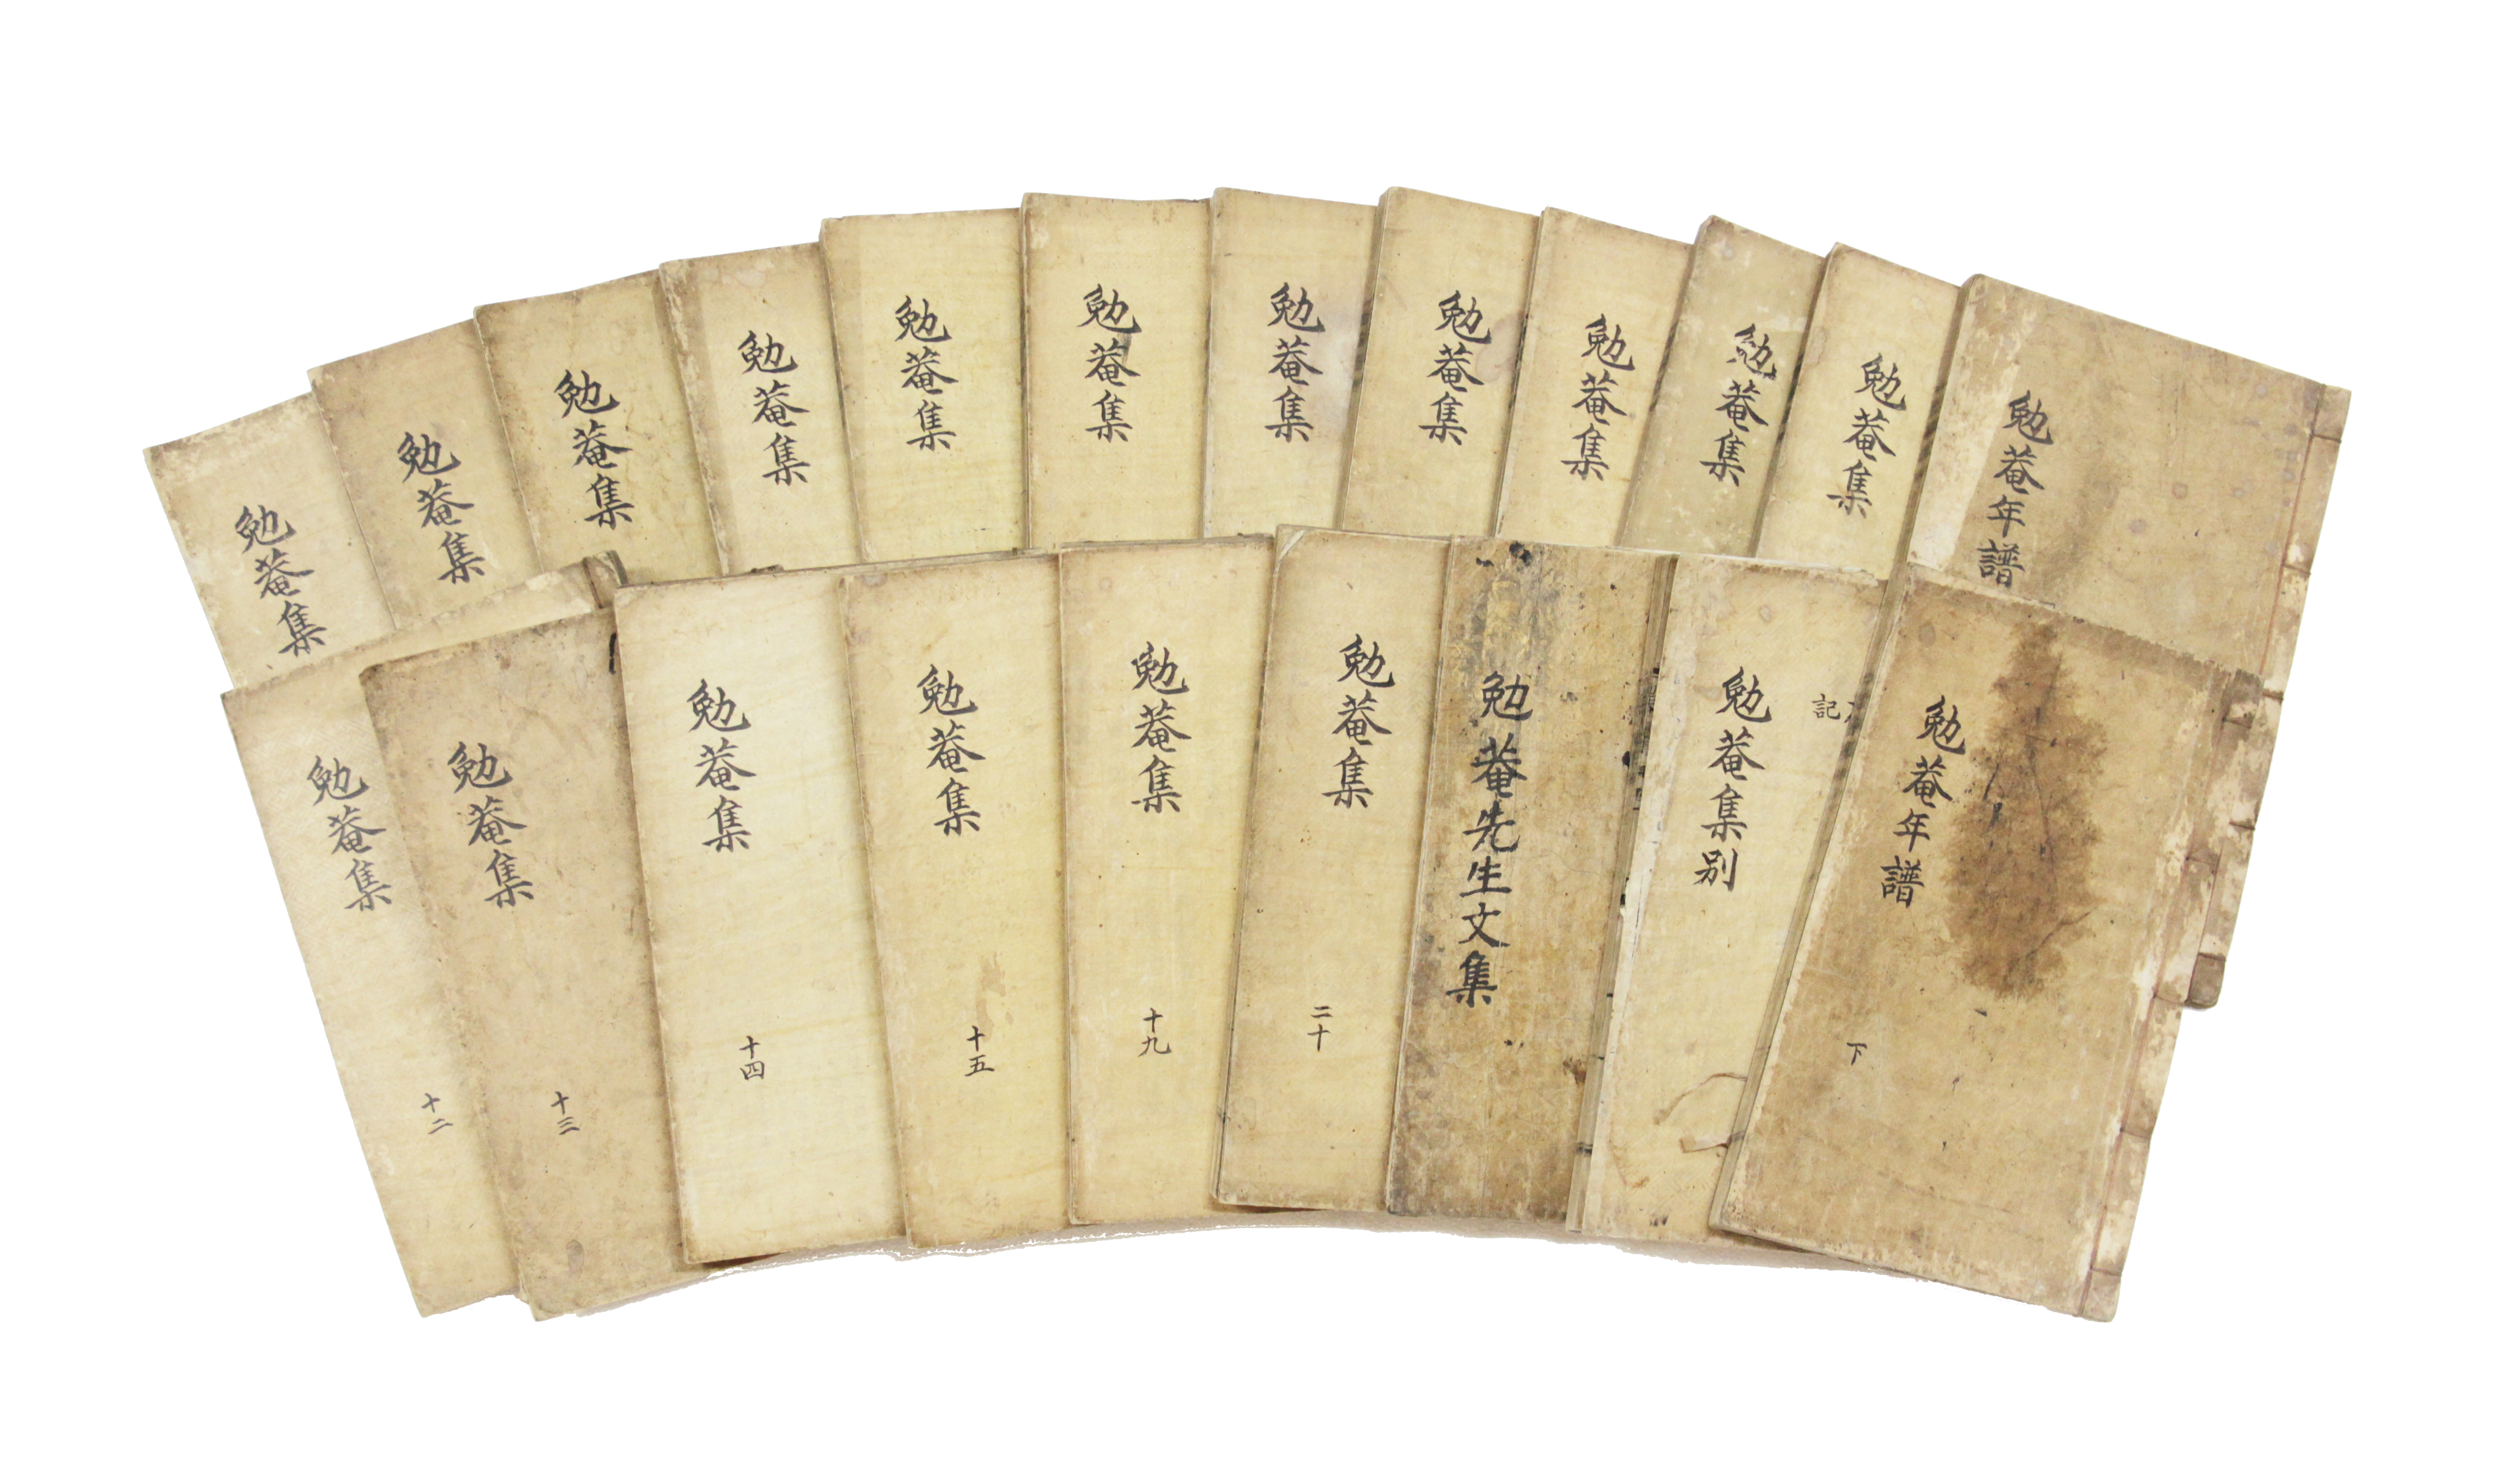 勉菴集
勉菴集
勉菴集
勉菴集
勉菴集
勉菴集
勉菴集
勉菴集
勉菴集
勉菴集
勉菴集
勉菴年譜
勉菴集
十二
勉菴集
十三
勉菴集
十四
勉菴集
十五
勉菴集
十九
勉菴集
二十
勉菴先生文集
勉菴集別
記
勉菴年譜
下